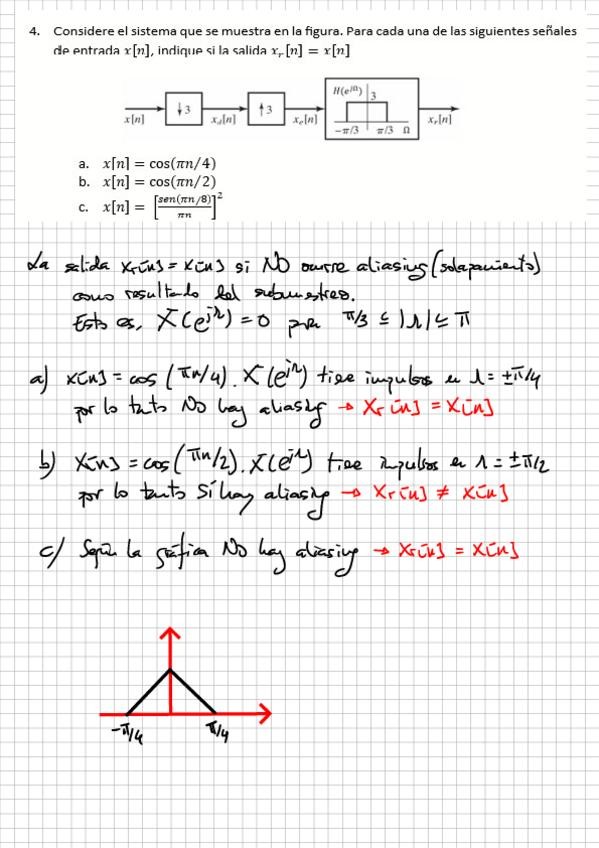 4. Considere el sistema que se muestra en la figura. Para cada una de las siguientes señales
de entrada x[n], indique si la salida xᵣ[n] = x[n]
H(e^{jΩ}) 3
↓3 ↑3
x[n] x_d[n] x_e[n] -π/3 π/3 Ω xᵣ[n]
a. x[n] = cos(πn/4)
b. x[n] = cos(πn/2)
c. x[n] = [sen(πn/8)/πn]²
La salida xr[n] = x[n] si NO ocurre aliasing (solapamiento)
como resultado del submuestreo.
Esto es, X(e^{jΩ}) = 0 para π/3 ≤ |Ω| ≤ π
a) x[n] = cos (πn/4). X(e^{jΩ}) tiene impulsos en Ω = ±π/4
por lo tanto NO hay aliasing → Xr[n] = X[n]
b) x[n] = cos(πn/2). X(e^{jΩ}) tiene impulsos en Ω = ±π/2
por lo tanto Sí hay aliasing → Xr[n] ≠ X[n]
c) Según la gráfica No hay aliasing → Xr[n] = X[n]
-π/4 π/4